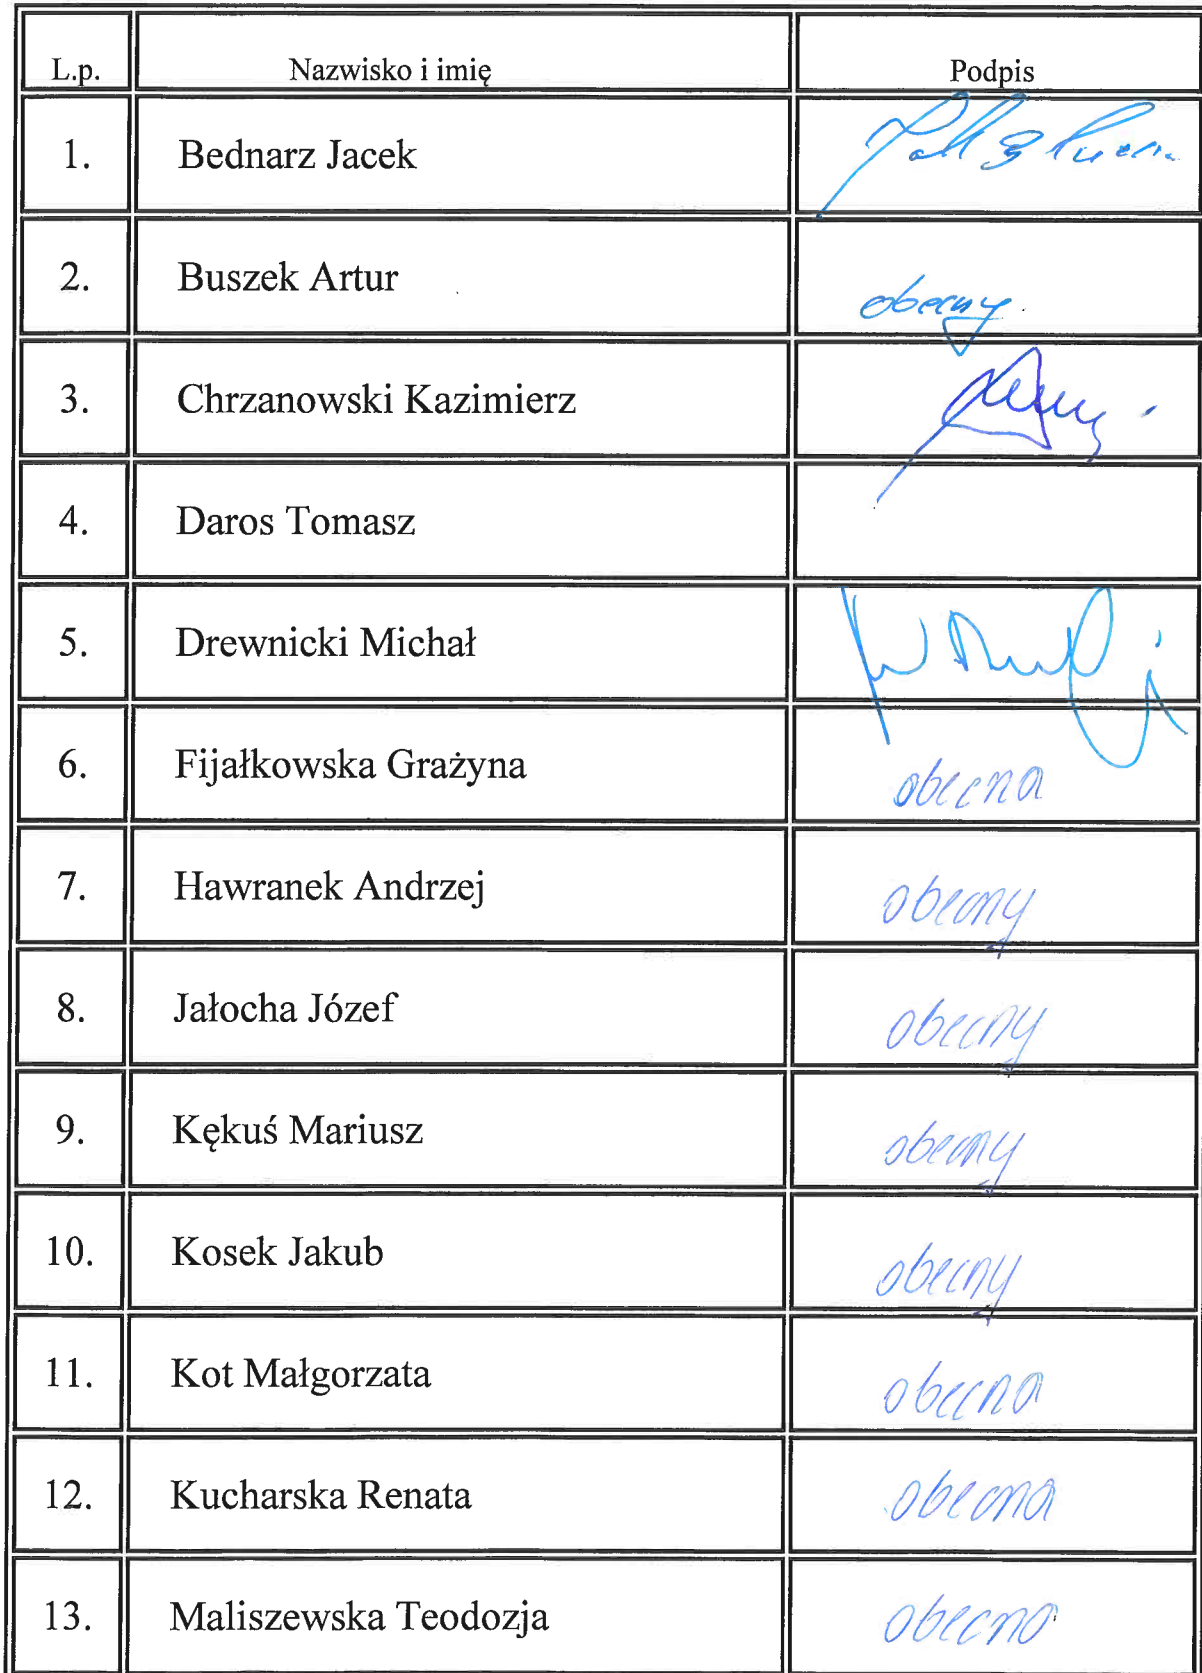 L.p. Nazwisko i imię Podpis
1. Bednarz Jacek
2. Buszek Artur obecny.
3. Chrzanowski Kazimierz
4. Daros Tomasz
5. Drewnicki Michał
6. Fijałkowska Grażyna obecna
7. Hawranek Andrzej obecny
8. Jałocha Józef obecny
9. Kękuś Mariusz obecny
10. Kosek Jakub obecny
11. Kot Małgorzata obecna
12. Kucharska Renata obecna
13. Maliszewska Teodozja obecna